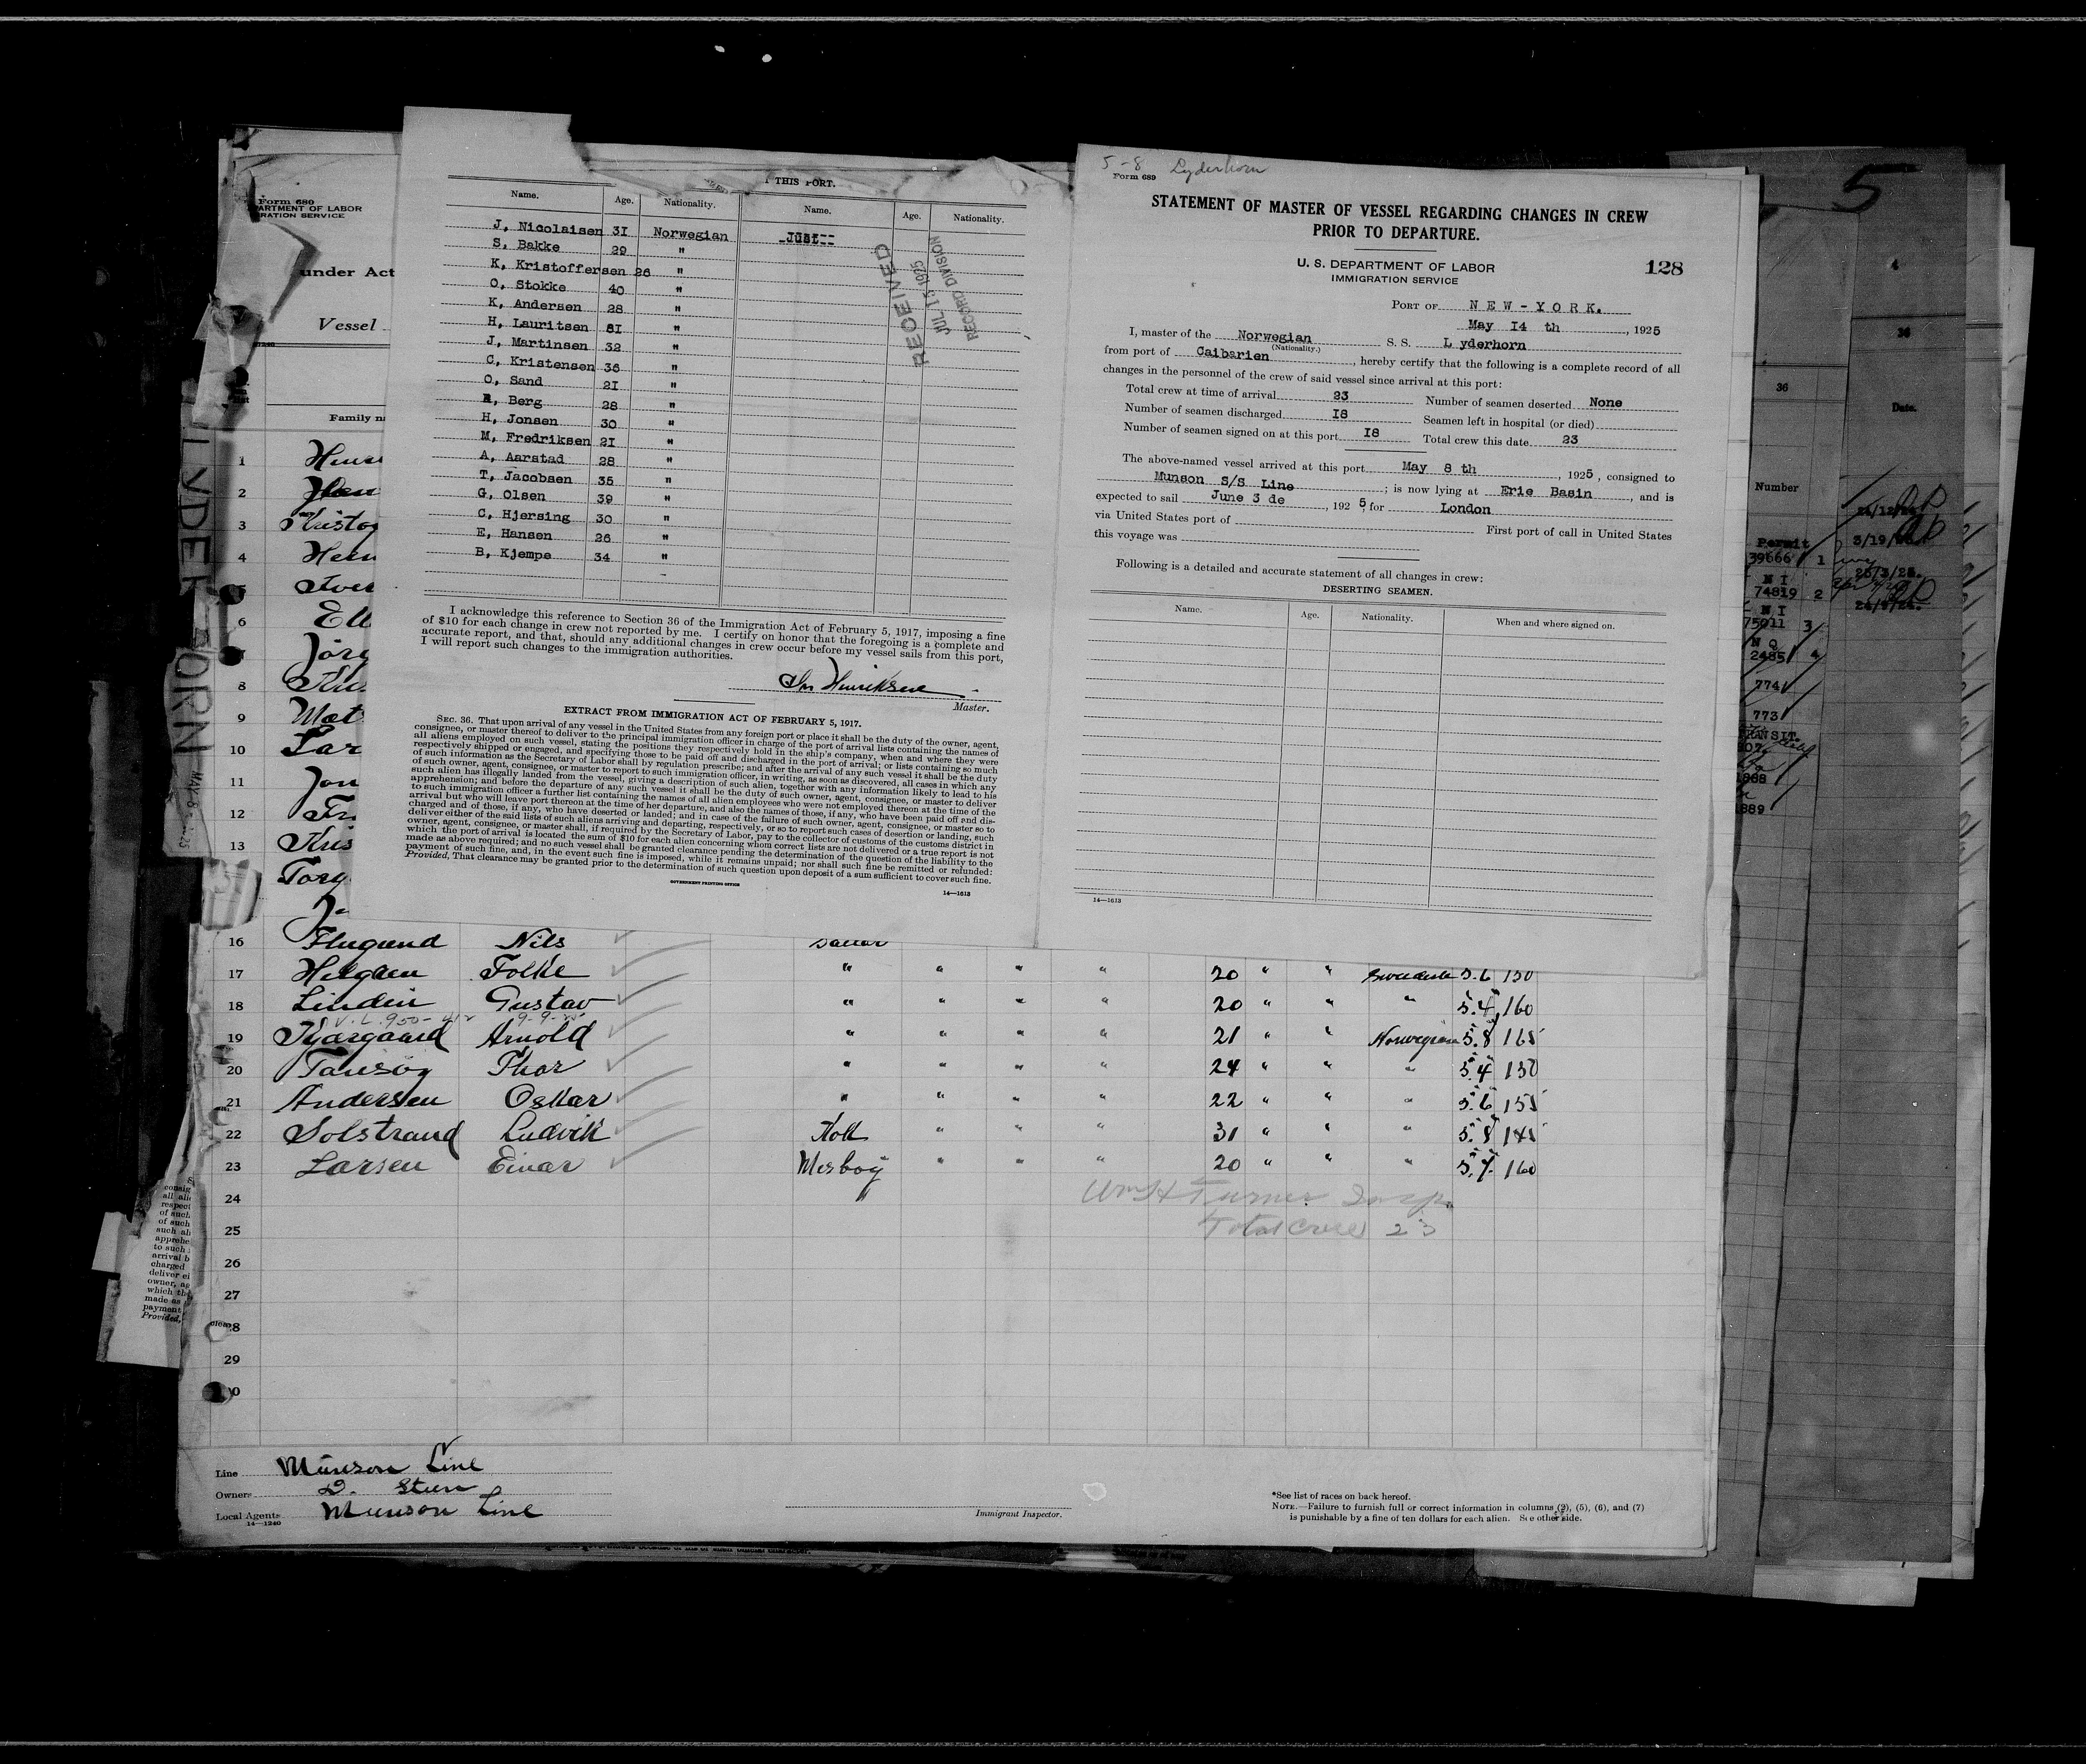 THIS PORT.
Name. Age. Nationality. Name. Age. Nationality.
J, Nicolaisen 31 Norwegian --Just--
S, Bakke 29 "
K, Kristoffersen 26 "
O, Stokke 40 "
K, Andersen 28 "
H, Lauritsen 31 "
J, Martinsen 32 "
C, Kristensen 36 "
O, Sand 21 "
Berg 28 "
H, Jonsen 30 "
M, Fredriksen 21 "
A, Aarstad 28 "
T, Jacobsen 35 "
G, Olsen 39 "
C, Hjersing 30 "
E, Hansen 26 "
B, Kjempe 34 "
RECEIVED
JUL 15 1925
RECORD DIVISION
I acknowledge this reference to Section 36 of the Immigration Act of February 5, 1917, imposing a fine
of $10 for each change in crew not reported by me. I certify on honor that the foregoing is a complete and
accurate report, and that, should any additional changes in crew occur before my vessel sails from this port,
I will report such changes to the immigration authorities.
Henriksen
Master.
EXTRACT FROM IMMIGRATION ACT OF FEBRUARY 5, 1917.
SEC. 36. That upon arrival of any vessel in the United States from any foreign port or place it shall be the duty of the owner, agent,
consignee, or master thereof to deliver to the principal immigration officer in charge of the port of arrival lists containing the names of
all aliens employed on such vessel, stating the positions they respectively hold in the ship's company, when and where they were
respectively shipped or engaged, and specifying those to be paid off and discharged in the port of arrival; or lists containing so much
of such information as the Secretary of Labor shall by regulation prescribe; and after the arrival of any such vessel it shall be the duty
of such owner, agent, consignee, or master to report to such immigration officer, in writing, as soon as discovered, all cases in which any
such alien has illegally landed from the vessel, giving a description of such alien, together with any information likely to lead to his
apprehension; and before the departure of any such vessel it shall be the duty of such owner, agent, consignee, or master to deliver
to such immigration officer a further list containing the names of all alien employees who were not employed thereon at the time of the
arrival but who will leave port thereon at the time of her departure, and also the names of those, if any, who have been paid off and dis-
charged and of those, if any, who have deserted or landed; and in case of the failure of such owner, agent, consignee, or master so to
deliver either of the said lists of such aliens arriving and departing, respectively, or so to report such cases of desertion or landing, such
owner, agent, consignee, or master shall, if required by the Secretary of Labor, pay to the collector of customs of the customs district in
which the port of arrival is located the sum of $10 for each alien concerning whom correct lists are not delivered or a true report is not
made as above required; and no such vessel shall be granted clearance pending the determination of the question of the liability to the
payment of such fine, and, in the event such fine is imposed, while it remains unpaid; nor shall such fine be remitted or refunded:
Provided, That clearance may be granted prior to the determination of such question upon deposit of a sum sufficient to cover such fine.
GOVERNMENT PRINTING OFFICE
14—1613
5-8 Lyderhorn
Form 689
STATEMENT OF MASTER OF VESSEL REGARDING CHANGES IN CREW
PRIOR TO DEPARTURE.
U. S. DEPARTMENT OF LABOR
IMMIGRATION SERVICE
128
PORT OF NEW-YORK.
May 14 th, 1925
I, master of the Norwegian S. S. L yderhorn
(Nationality.)
from port of Caibarien, hereby certify that the following is a complete record of all
changes in the personnel of the crew of said vessel since arrival at this port:
Total crew at time of arrival 23 Number of seamen deserted None
Number of seamen discharged 18 Seamen left in hospital (or died)
Number of seamen signed on at this port 18 Total crew this date 23
The above-named vessel arrived at this port May 8 th, 1925, consigned to
Munson S/S Line; is now lying at Erie Basin, and is
expected to sail June 3 de, 1925, for London
via United States port of First port of call in United States
this voyage was
Following is a detailed and accurate statement of all changes in crew:
DESERTING SEAMEN.
Name. Age. Nationality. When and where signed on.
14—1613
Form 680
ARTMENT OF LABOR
RATION SERVICE
under Act
Vessel
Family na
LYDERHORN
1
2
3
4
6
8
9
10
11
12
13
16 Nils
17 Folke " " " " 20 " " 5.6 150
18 Linden Gustav " " " " 20 " " " 5.4 160
19 Kjærgaard Arnold " " " " 21 " " Norwegian 5.8 165
20 Thor " " " " 24 " " " 5.4 150
21 Andersen Oskar " " " " 22 " " " 5.6 155
22 Solstrand Ludvik Kok " " " 31 " " " 5.8
23 Larsen Einar Mesboy " " " 20 " " " 5.7 160
24 Wm H Turner Insp.
25 Total Crew 23
26
27
28
29
Line Munson Line
Owners
Local Agents Munson Line
14—1240
Immigrant Inspector.
*See list of races on back hereof.
NOTE.—Failure to furnish full or correct information in columns (2), (5), (6), and (7)
is punishable by a fine of ten dollars for each alien. See other side.
5
4
36
36
Date.
Number
Permit
39666 1
N I
74819 2
N I
75011 3
2485 4
774
773
1888
1889